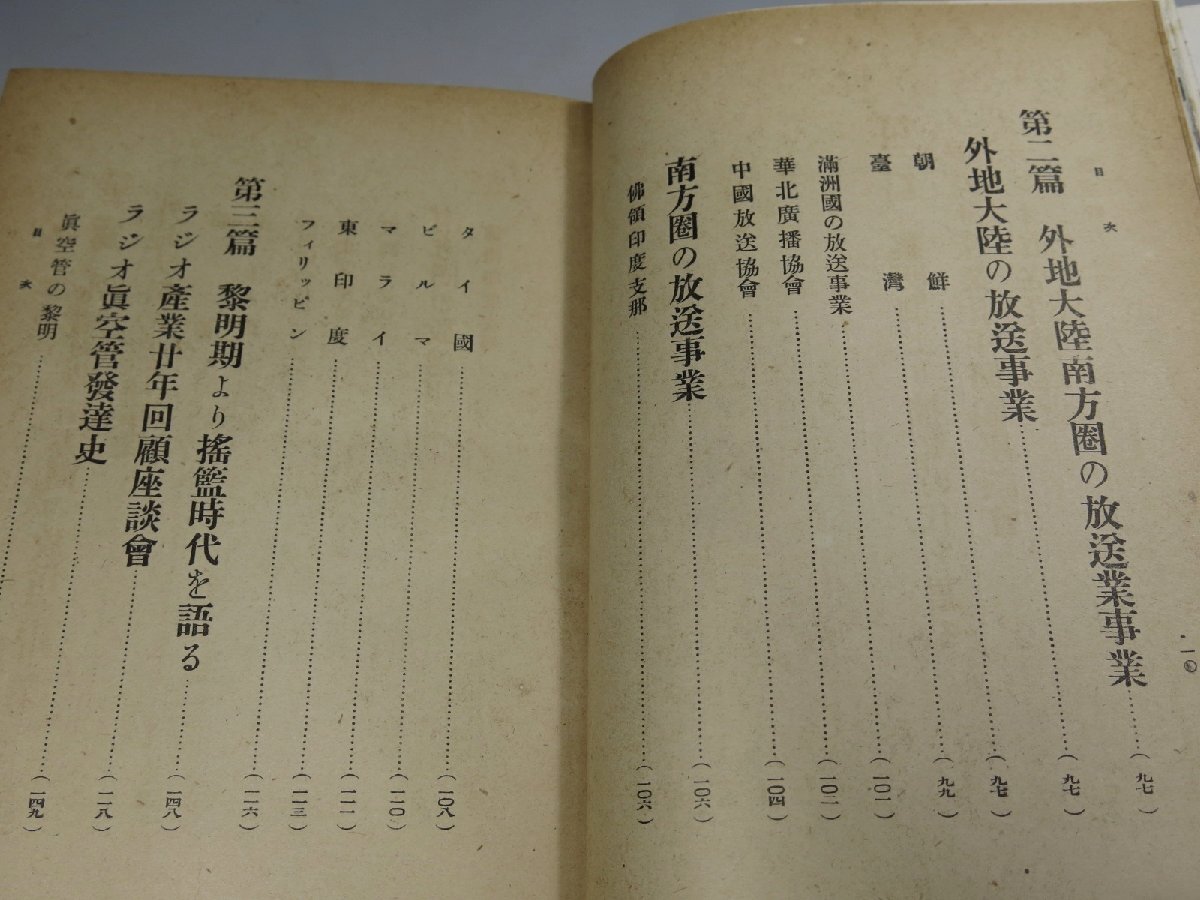 目次
一〇
第二篇 外地大陸南方圏の放送業事業……(九七)
外地大陸の放送事業……(九七)
朝鮮……(九七)
臺灣……(九九)
滿洲國の放送事業……(一〇一)
華北廣播協會……(一〇二)
中國放送協會……(一〇四)
南方圏の放送事業……(一〇六)
佛領印度支那……(一〇六)
タイ國……(一〇八)
ビルマ……(一一〇)
マライ……(一一一)
東印度……(一一三)
フィリッピン……(一一六)
第三篇 黎明期より搖籃時代を語る……(一四八)
ラジオ產業廿年回顧座談會……(一一八)
ラジオ眞空管發達史……(一四九)
眞空管の黎明……
目次